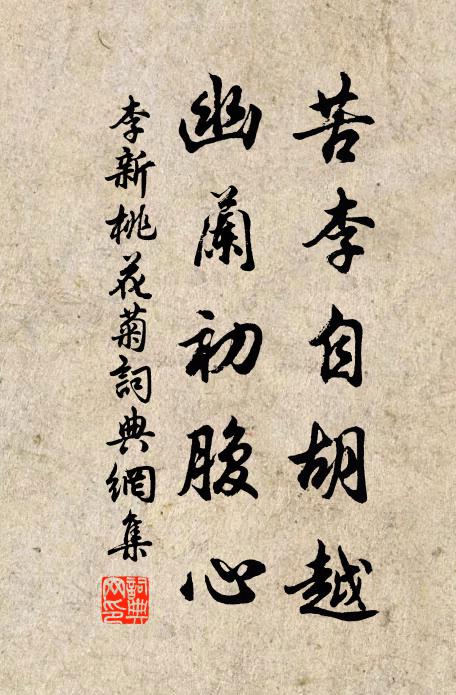 苦李自胡越
幽蘭初腹心
李新桃花菊詞典網集
詞典網印